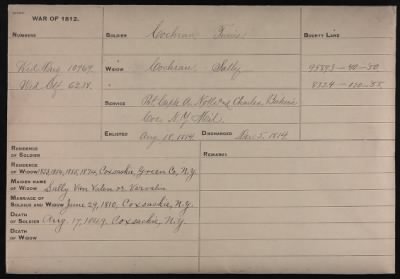 WAR OF 1812.
NUMBERS
SOLDIER Cochran,
BOUNTY LAND
Wid. Orig. 10969
WIDOW Cochran, Sally
95593-40-50
Wid. Ctf. 6238
8324-120-55
SERVICE Pvt Capts A. and Charles
Cos. N.Y. Mil.
ENLISTED Aug. 18, 1814 DISCHARGED Nov. 5, 1814
RESIDENCE
OF SOLDIER
REMARKS
RESIDENCE
OF WIDOW Coxsackie, Green Co, N.Y.
MAIDEN NAME
OF WIDOW Sally Van Valen or
MARRIAGE OF
SOLDIER AND WIDOW June 29, 1810, Coxsackie, N.Y.
DEATH
OF SOLDIER Aug. 17, 1849, Coxsackie, N.Y.
DEATH
OF WIDOW